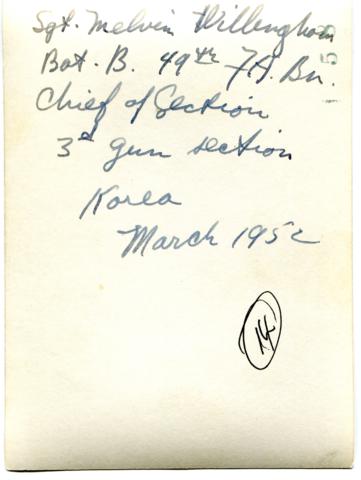 Sgt. Melvin Willingham
Bat. B. 49th F.A. Bn.
Chief of Section
3d gun section
Korea
March 1952
14